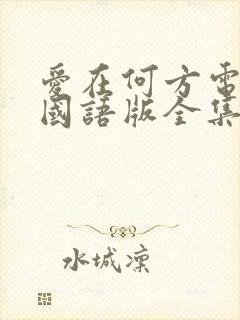 愛在何方電
國語版全集
水城凜